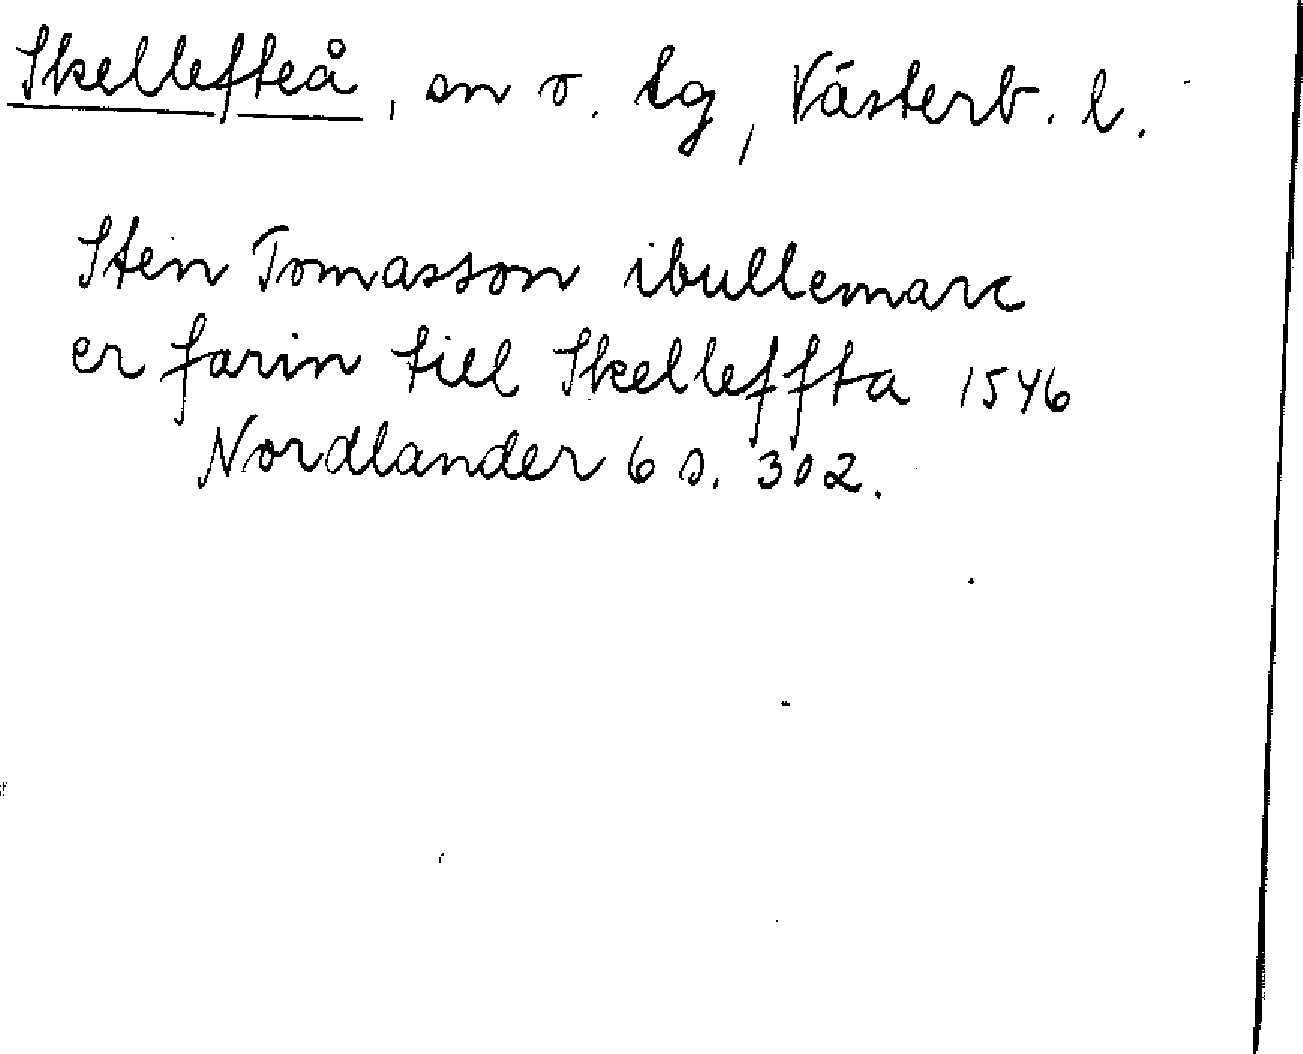 Skellefteå, sn o. tg, Västerb. l.
Sten Tomasson ibullemarc
er farin till Skelleffta 1546
Nordlander 6 s. 302.